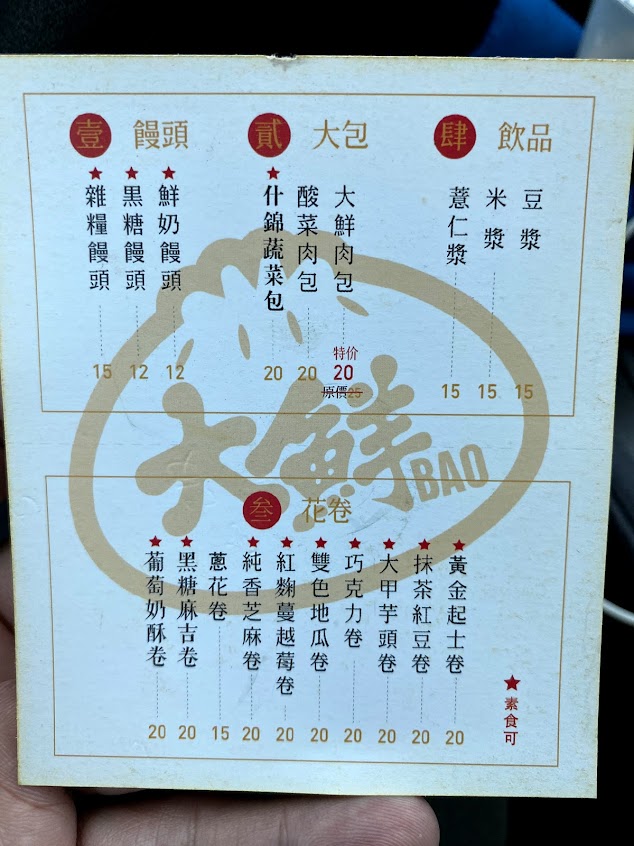 壹 饅頭
★ 鮮奶饅頭 12
★ 黑糖饅頭 12
★ 雜糧饅頭 15
貳 大包
大鮮肉包 特価 20 原價25
酸菜肉包 20
★ 什錦蔬菜包 20
肆 飲品
豆漿 15
米漿 15
薏仁漿 15
大鮮BAO
叁 花卷
★ 黃金起士卷 20
★ 抹茶紅豆卷 20
★ 大甲芋頭卷 20
★ 巧克力卷 20
★ 雙色地瓜卷 20
★ 紅麴蔓越莓卷 20
★ 純香芝麻卷 20
蔥花卷 15
★ 黑糖麻吉卷 20
★ 葡萄奶酥卷 20
★ 素食可